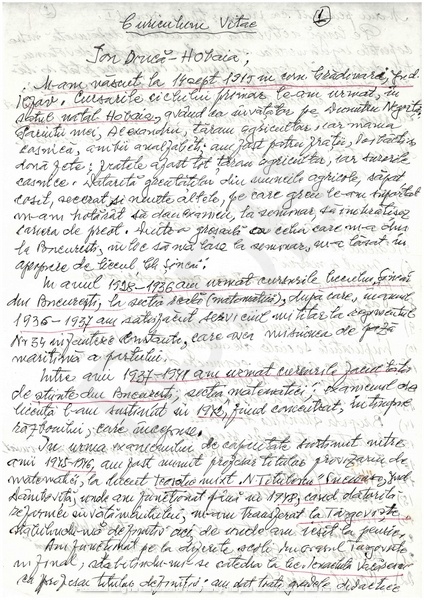 Curiculum Vitae
1
Ion Dincă-Hobaia;
M-am născut la 14 sept 1915 în com Grădinari, jud.
Ilfov. Cursurile ciclului primar le-am urmat, în
satul natal Hobaia, având ca învățător pe Dumitru Negoiță,
Părinții mei, Alexandru, țăran agricultor, iar mama
casnică, amîndoi analfabeți; am fost patru frați, doi băieți și
două fete; fratele a fost tot țăran agricultor, iar surorile
casnice. Datorită greutăților din muncile agricole, săpat
cosit, secerat și multe altele, pe care greu le-am suportat
m-am hotărât să dau examen, la seminar, să îmbrățișez
cariera de preot. Dintr-o greșeală cu celia care m-a dus
la București, în loc să mă lase la seminar, m-a lăsat în
apropiere de liceul Gh Șincai.
În anul 1928-1936 am urmat cursurile liceului, Șincai
din București, la secția reală (matematică), după care, în anul
1936-1937 am satisfăcut serviciul militar la regimentul
Nr 34 infanterie Constanța, care avea misiunea de pază
maritimă a portului.
Între anii 1937-1941 am urmat cursurile facultății
de științe din București, secția matematici; examenul de
licență l-am susținut în 1942, fiind concentrat, în timpul
războiului, care începuse.
În urma examenului de capacitate susținut între
anii 1945-1946, am fost numit profesor titular provizoriu de
matematică, la liceul teoretic mixt, N Titulescu Pucioasa, jud.
Dâmbovița, unde am funcționat până în 1948, când datorită
reformei învățământului, m-am transferat la Târgoviște
stabilindu-mă definitiv aici, de unde am ieșit la pensie.
Am funcționat pe la diferite școli în orașul Târgoviște
în final, stabilindu-mi-se catedra la lic. Ienăchiță Văcărescu
ca profesor titular definitiv; am dat toate gradele didactice